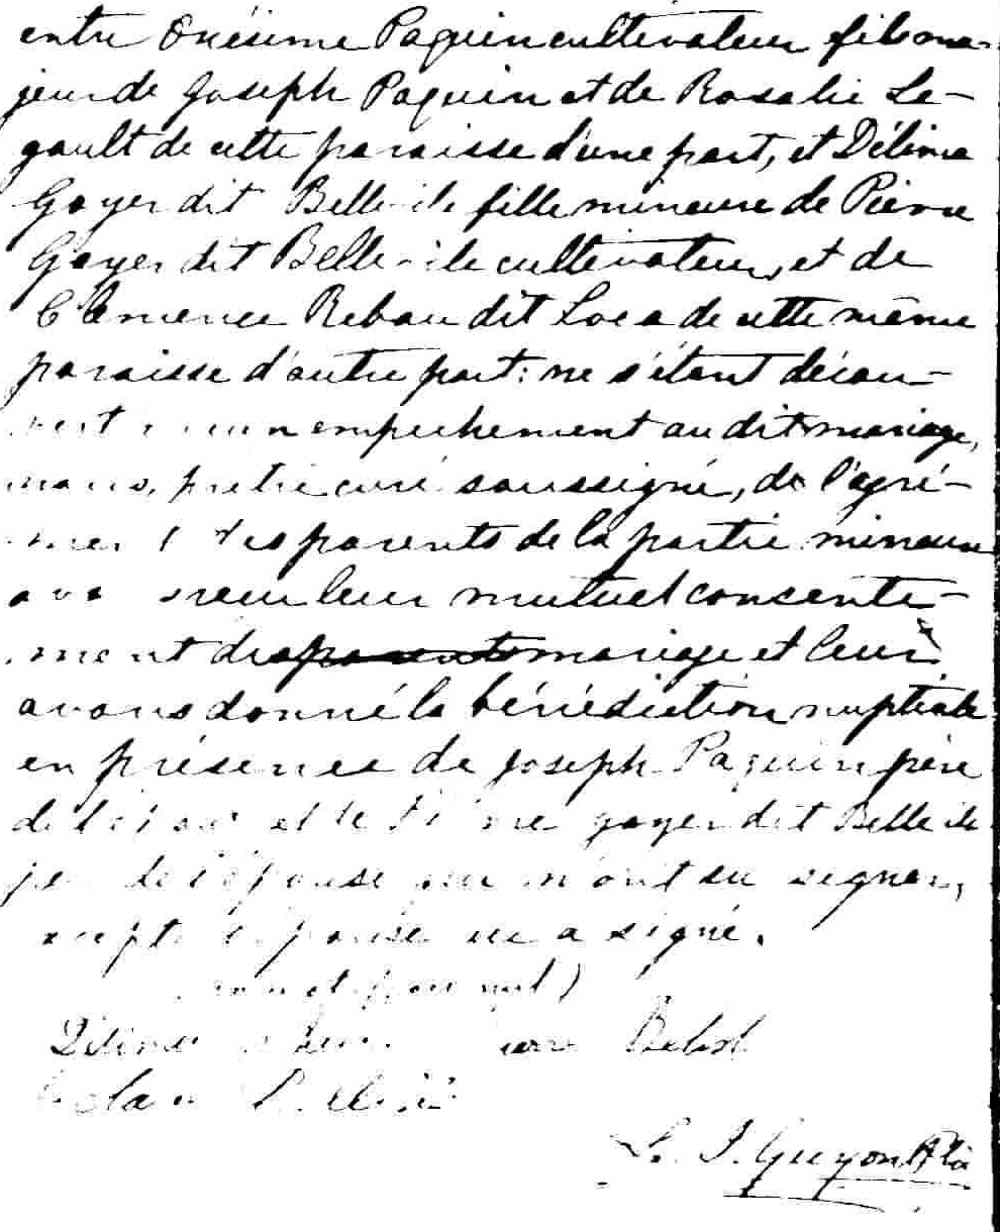 entre Onésime Paquin cultivateur fils ma-
jeur de Joseph Paquin et de Rosalie Le-
gault de cette paroisse d'une part, et Délima
Goyer dit Belle-ile fille mineure de Pierre
Goyer dit Belle-ile cultivateur, et de
Clémence Rebau dit Loca de cette même
paroisse d'autre part: ne s'étant décou-
vert aucun empêchement au dit mariage,
nous, prêtre curé soussigné, de l'agré-
ment des parents de la partie mineure
avons reçu leur mutuel consente-
ment de mariage et leur
avons donné la bénédiction nuptiale
en présence de Joseph Paquin père
de l'époux et de goyer dit Belle ile
père de l'épouse qui n'ont su signer,
excepté l'épouse qui a signé.
mot nul)
Délima
L. J. Guyon Ptre